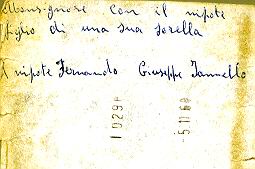 Mons-gnore con il nipote
figlio di una sua sorella
Il nipote Fernando Giuseppe Iannello
1029
5.11.69